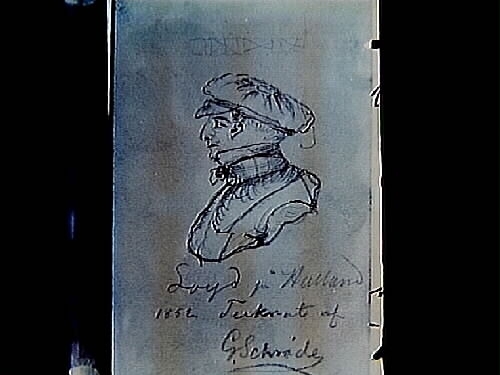 Loyd på Halland
1852 Teknat af
G. Schröder